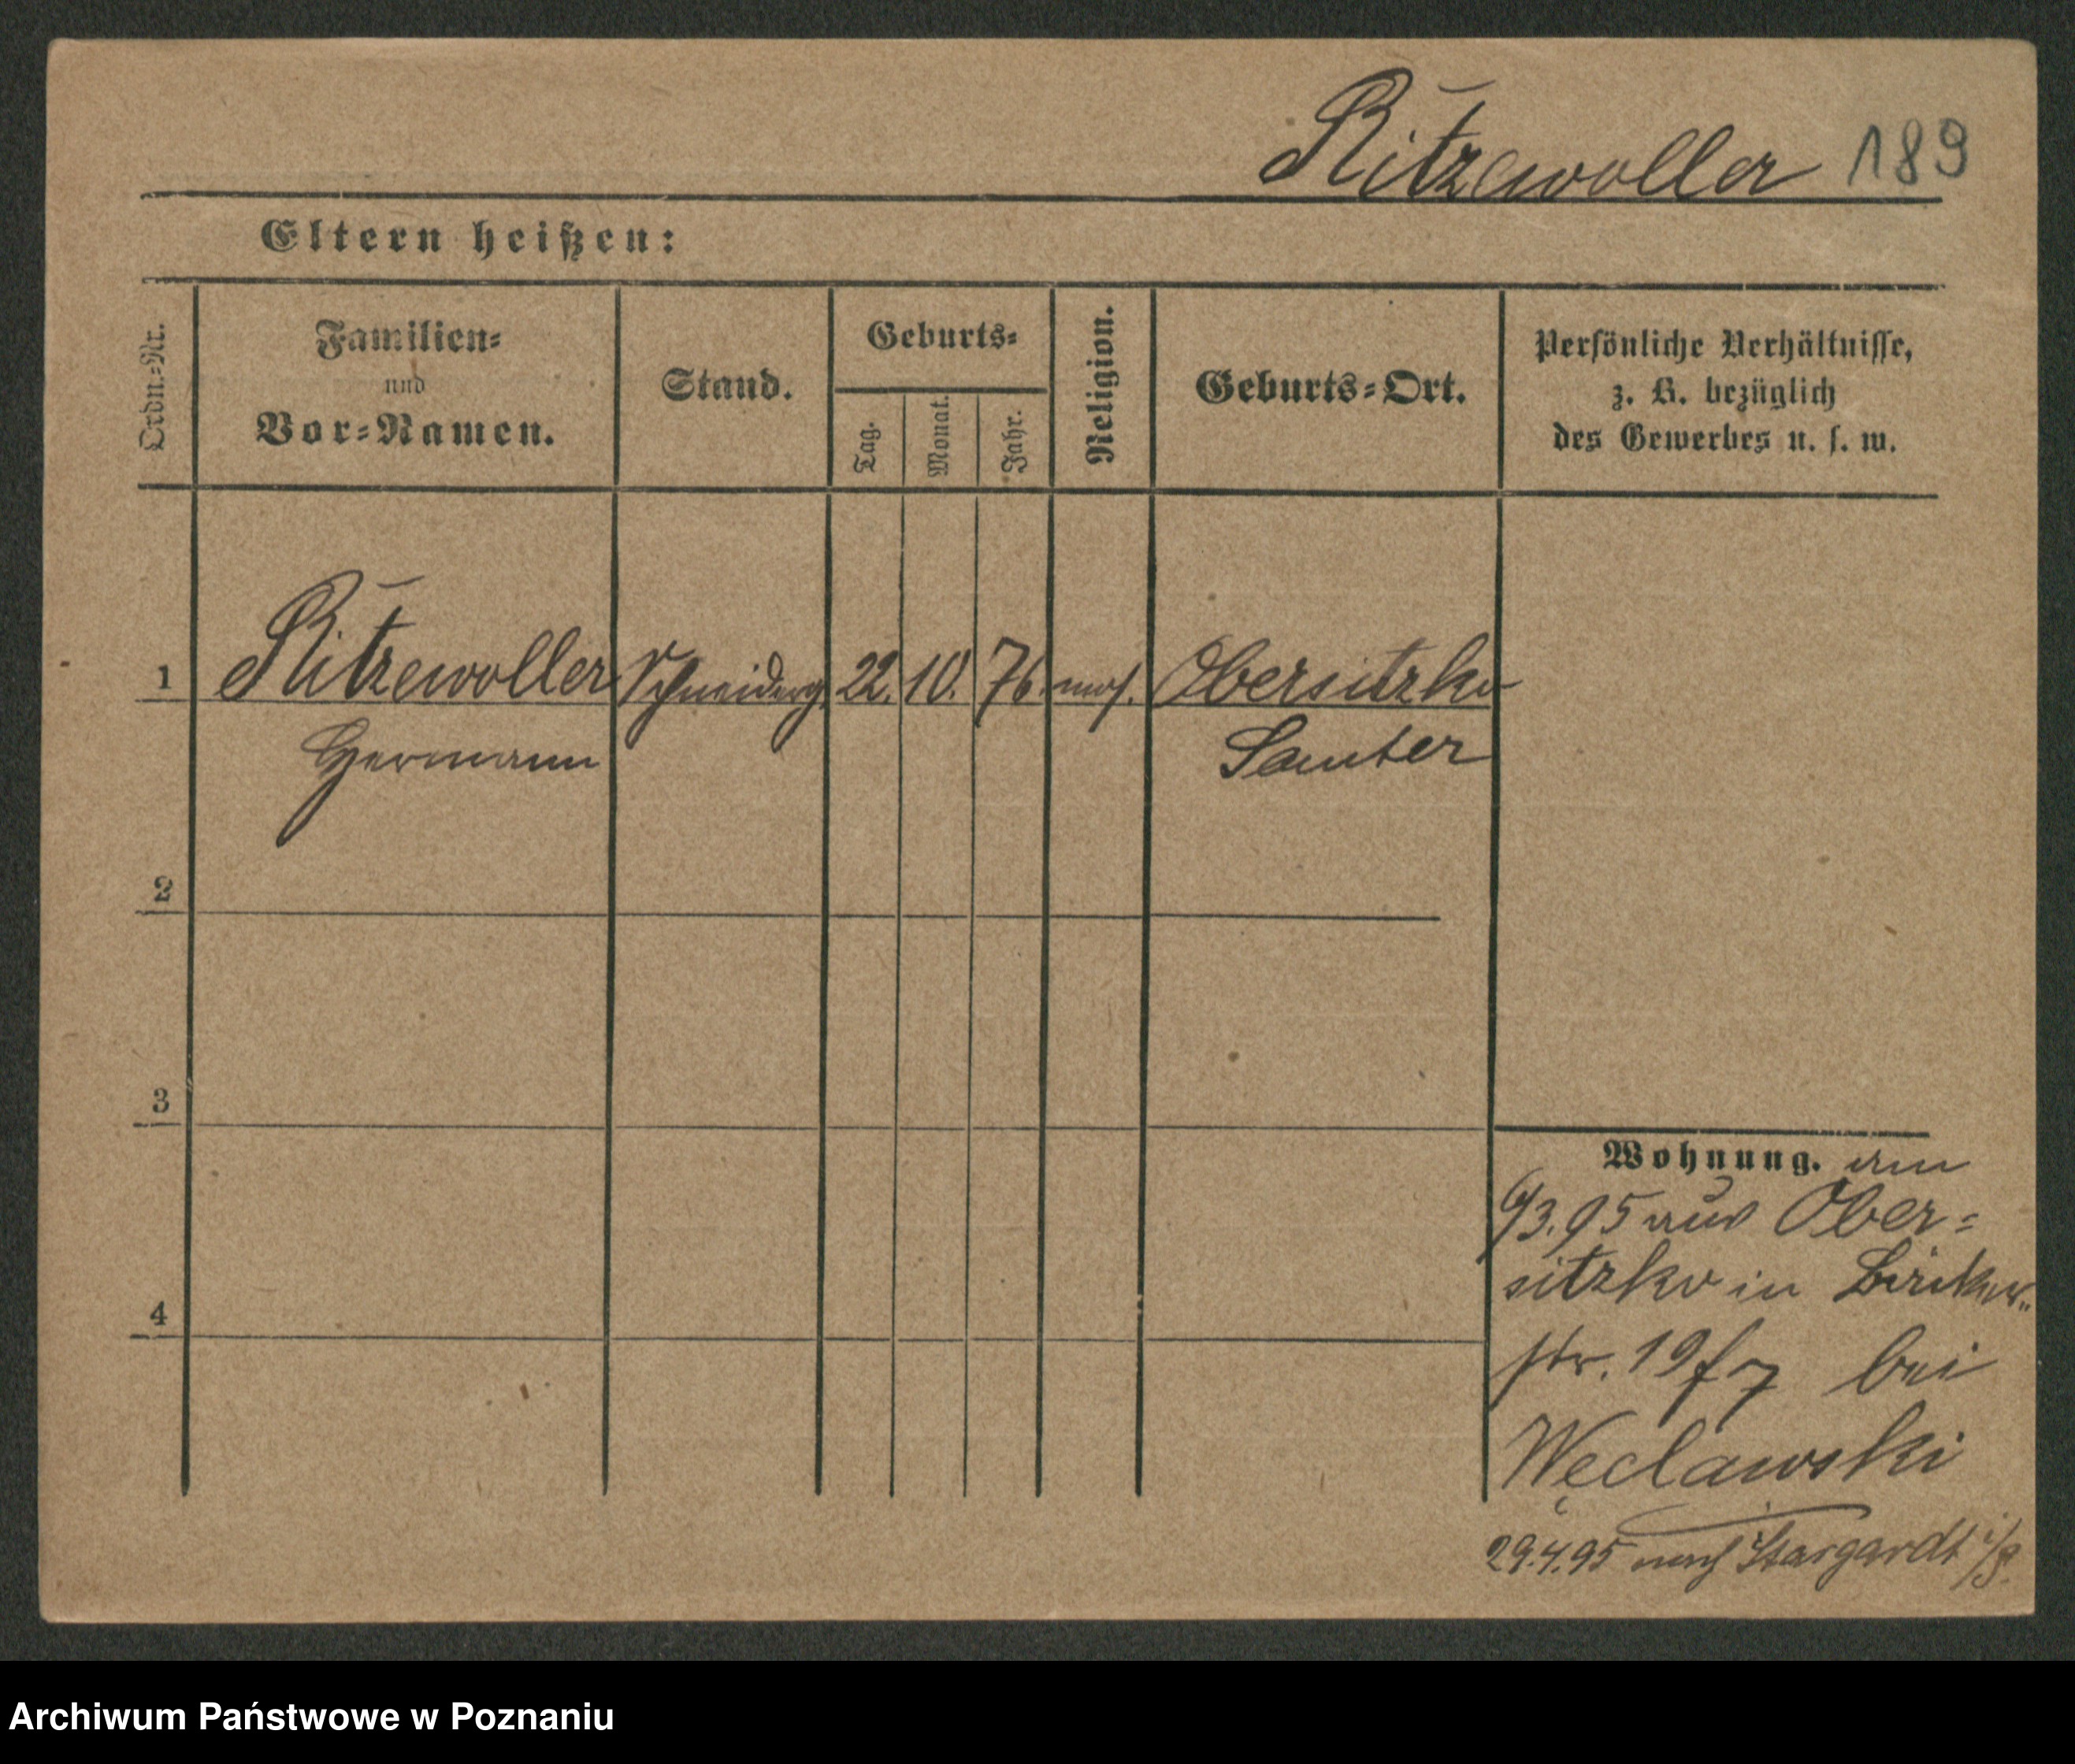 Ritzewoller 189
Eltern heißen:
Ordn.-Nr.
Familien-
und
Vor-Namen.
Stand.
Geburts-
Tag.
Monat.
Jahr.
Religion.
Geburts-Ort.
Persönliche Verhältnisse,
z. B. bezüglich
des Gewerbes u. s. w.
1 Ritzewoller Schneiderg. 22. 10. 76. mos. Obersitzko
Hermann Samter
2
3
4
Wohnung. am
6/3.95 aus Ober=
sitzko in
str. 19 f 7 bei
Węclawski
29.4.95 nach Stargardt i/P.
Archiwum Państwowe w Poznaniu